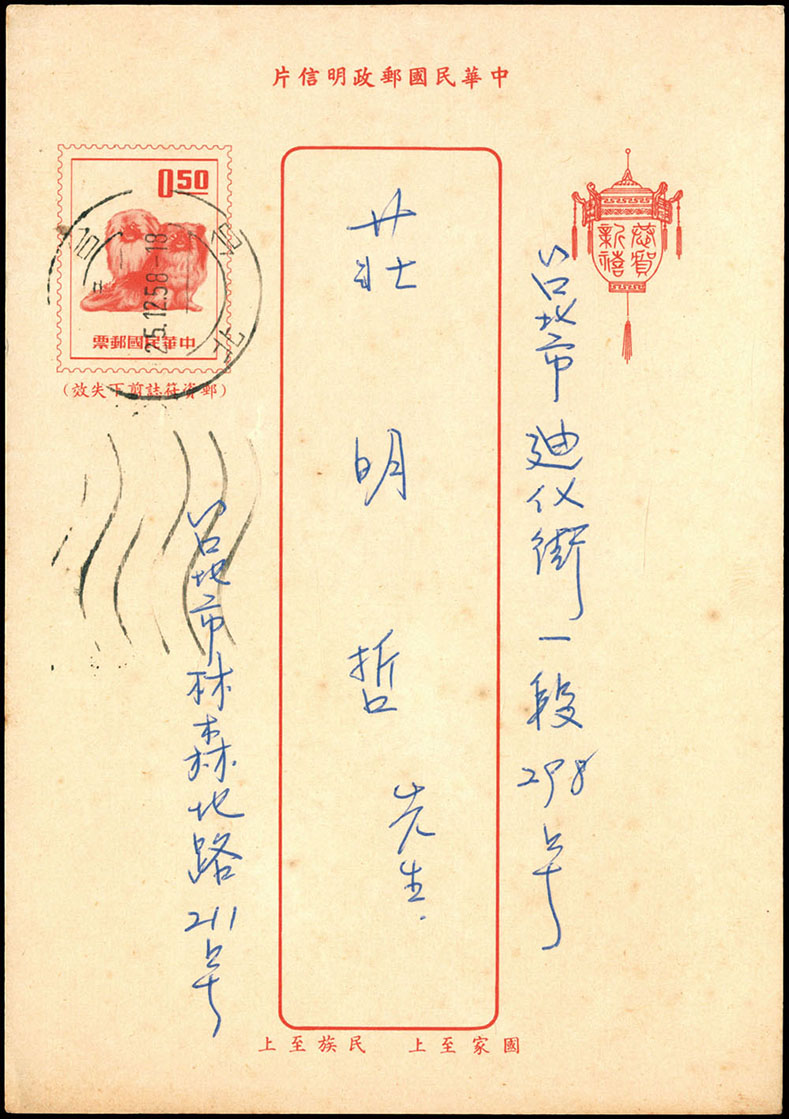 中華民國郵政明信片
恭賀
新禧
台北市迪化街一段298号
莊明哲先生
050
中華民國郵票
(郵資符誌剪下失效)
25.12.58-18
台北市林森北路211号
國家至上 民族至上